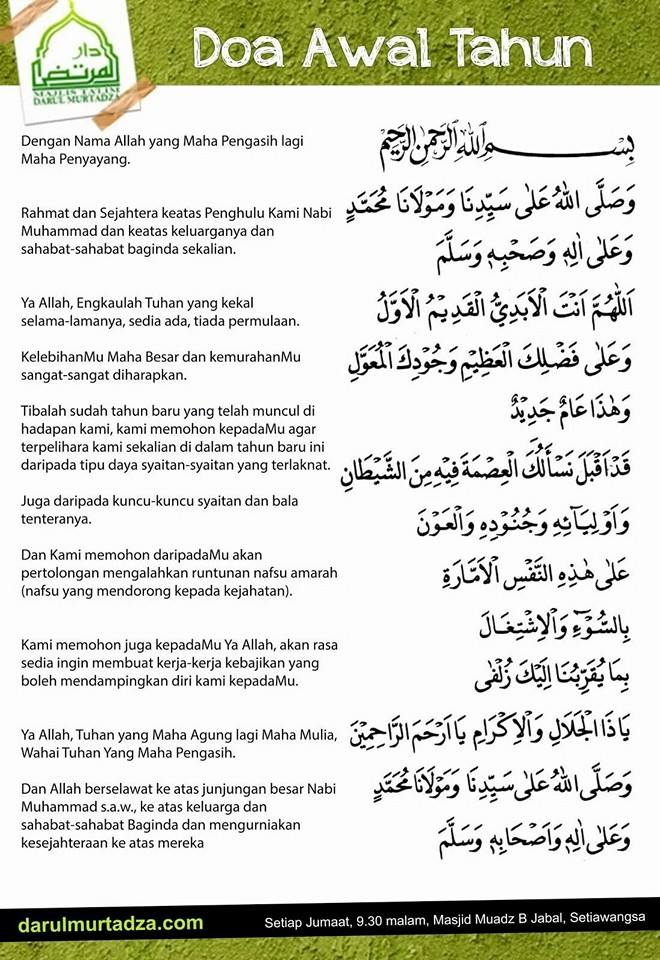 دار
المرتضى
MAJLIS TA'LIM
DARUL MURTADZA
Doa Awal Tahun
Dengan Nama Allah yang Maha Pengasih lagi
Maha Penyayang.
بِسْمِ اللهِ الرَّحْمٰنِ الرَّحِيْمِ
Rahmat dan Sejahtera keatas Penghulu Kami Nabi
Muhammad dan keatas keluarganya dan
sahabat-sahabat baginda sekalian.
وَصَلَّى اللهُ عَلٰى سَيِّدِنَا وَمَوْلَانَا مُحَمَّدٍ
وَعَلٰى اٰلِهٖ وَصَحْبِهٖ وَسَلَّمَ
Ya Allah, Engkaulah Tuhan yang kekal
selama-lamanya, sedia ada, tiada permulaan.
اَللّٰهُمَّ اَنْتَ الْاَبَدِيُّ الْقَدِيْمُ الْاَوَّلُ
KelebihanMu Maha Besar dan kemurahanMu
sangat-sangat diharapkan.
وَعَلٰى فَضْلِكَ الْعَظِيْمِ وَجُوْدِكَ الْمُعَوَّلِ
Tibalah sudah tahun baru yang telah muncul di
hadapan kami, kami memohon kepadaMu agar
terpelihara kami sekalian di dalam tahun baru ini
daripada tipu daya syaitan-syaitan yang terlaknat.
وَهٰذَا عَامٌ جَدِيْدٌ
قَدْ اَقْبَلَ نَسْأَلُكَ الْعِصْمَةَ فِيْهِ مِنَ الشَّيْطَانِ
Juga daripada kuncu-kuncu syaitan dan bala
tenteranya.
وَاَوْلِيَآئِهِ وَجُنُوْدِهِ وَالْعَوْنَ
Dan Kami memohon daripadaMu akan
pertolongan mengalahkan runtunan nafsu amarah
(nafsu yang mendorong kepada kejahatan).
عَلٰى هٰذِهِ النَّفْسِ الْاَمَّارَةِ
بِالسُّوْٓءِ وَالْاِشْتِغَالَ
Kami memohon juga kepadaMu Ya Allah, akan rasa
sedia ingin membuat kerja-kerja kebajikan yang
boleh mendampingkan diri kami kepadaMu.
بِمَا يُقَرِّبُنَا اِلَيْكَ زُلْفٰى
Ya Allah, Tuhan yang Maha Agung lagi Maha Mulia,
Wahai Tuhan Yang Maha Pengasih.
يَاذَا الْجَلَالِ وَالْاِكْرَامِ يَا اَرْحَمَ الرَّاحِمِيْنَ
Dan Allah berselawat ke atas junjungan besar Nabi
Muhammad s.a.w., ke atas keluarga dan
sahabat-sahabat Baginda dan mengurniakan
kesejahteraan ke atas mereka
وَصَلَّى اللهُ عَلٰى سَيِّدِنَا وَمَوْلَانَا مُحَمَّدٍ
وَعَلٰى اٰلِهٖ وَاَصْحَابِهٖ وَسَلَّمَ
darulmurtadza.com
Setiap Jumaat, 9.30 malam, Masjid Muadz B Jabal, Setiawangsa